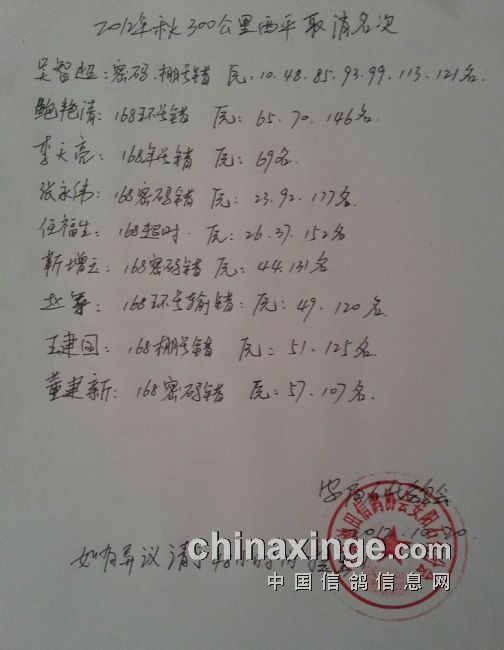 2012年秋300公里西平取消名次
吴智超:密码.棚号错 原:10.48.85.93.99.113.121名
鲍艳清:168环号错 原:65.70.146名
李天亮:168年号错 原:69名
张永伟:168密码错 原:23.92.177名
任福生:168超时. 原:26.37.152名
靳增玉:168密码错 原:44.131名
赵军:168环号输错:原:49.120名
王建国:168棚号错 原:51.125名.
董建新:168密码错 原:57.107名.
信鸽协会安阳
2012.10
如有异议请于48小时内
chinaxinge.com
中国信鸽信息网